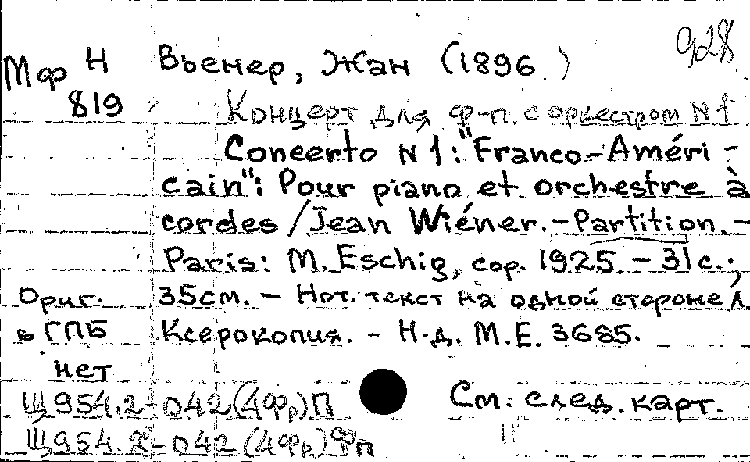 928
Мф Н Вьенер, Жан (1896 )
819 Концерт для ф-п. с оркестром N1
Concerto N1: "Franco-Améri-
cain": Pour piano et orchestre à
cordes / Jean Wiéner. - Partition. -
Paris: M. Eschig, cop. 1925. - 31с.;
Ориг. 35см. - Нот. текст на одной стороне л.
в ГПБ Ксерокопия. - Н.д. M.E. 3685.
нет
Щ954.2-042(4Фр)П См. след. карт.
Щ954.2-042(4Фр)Фп